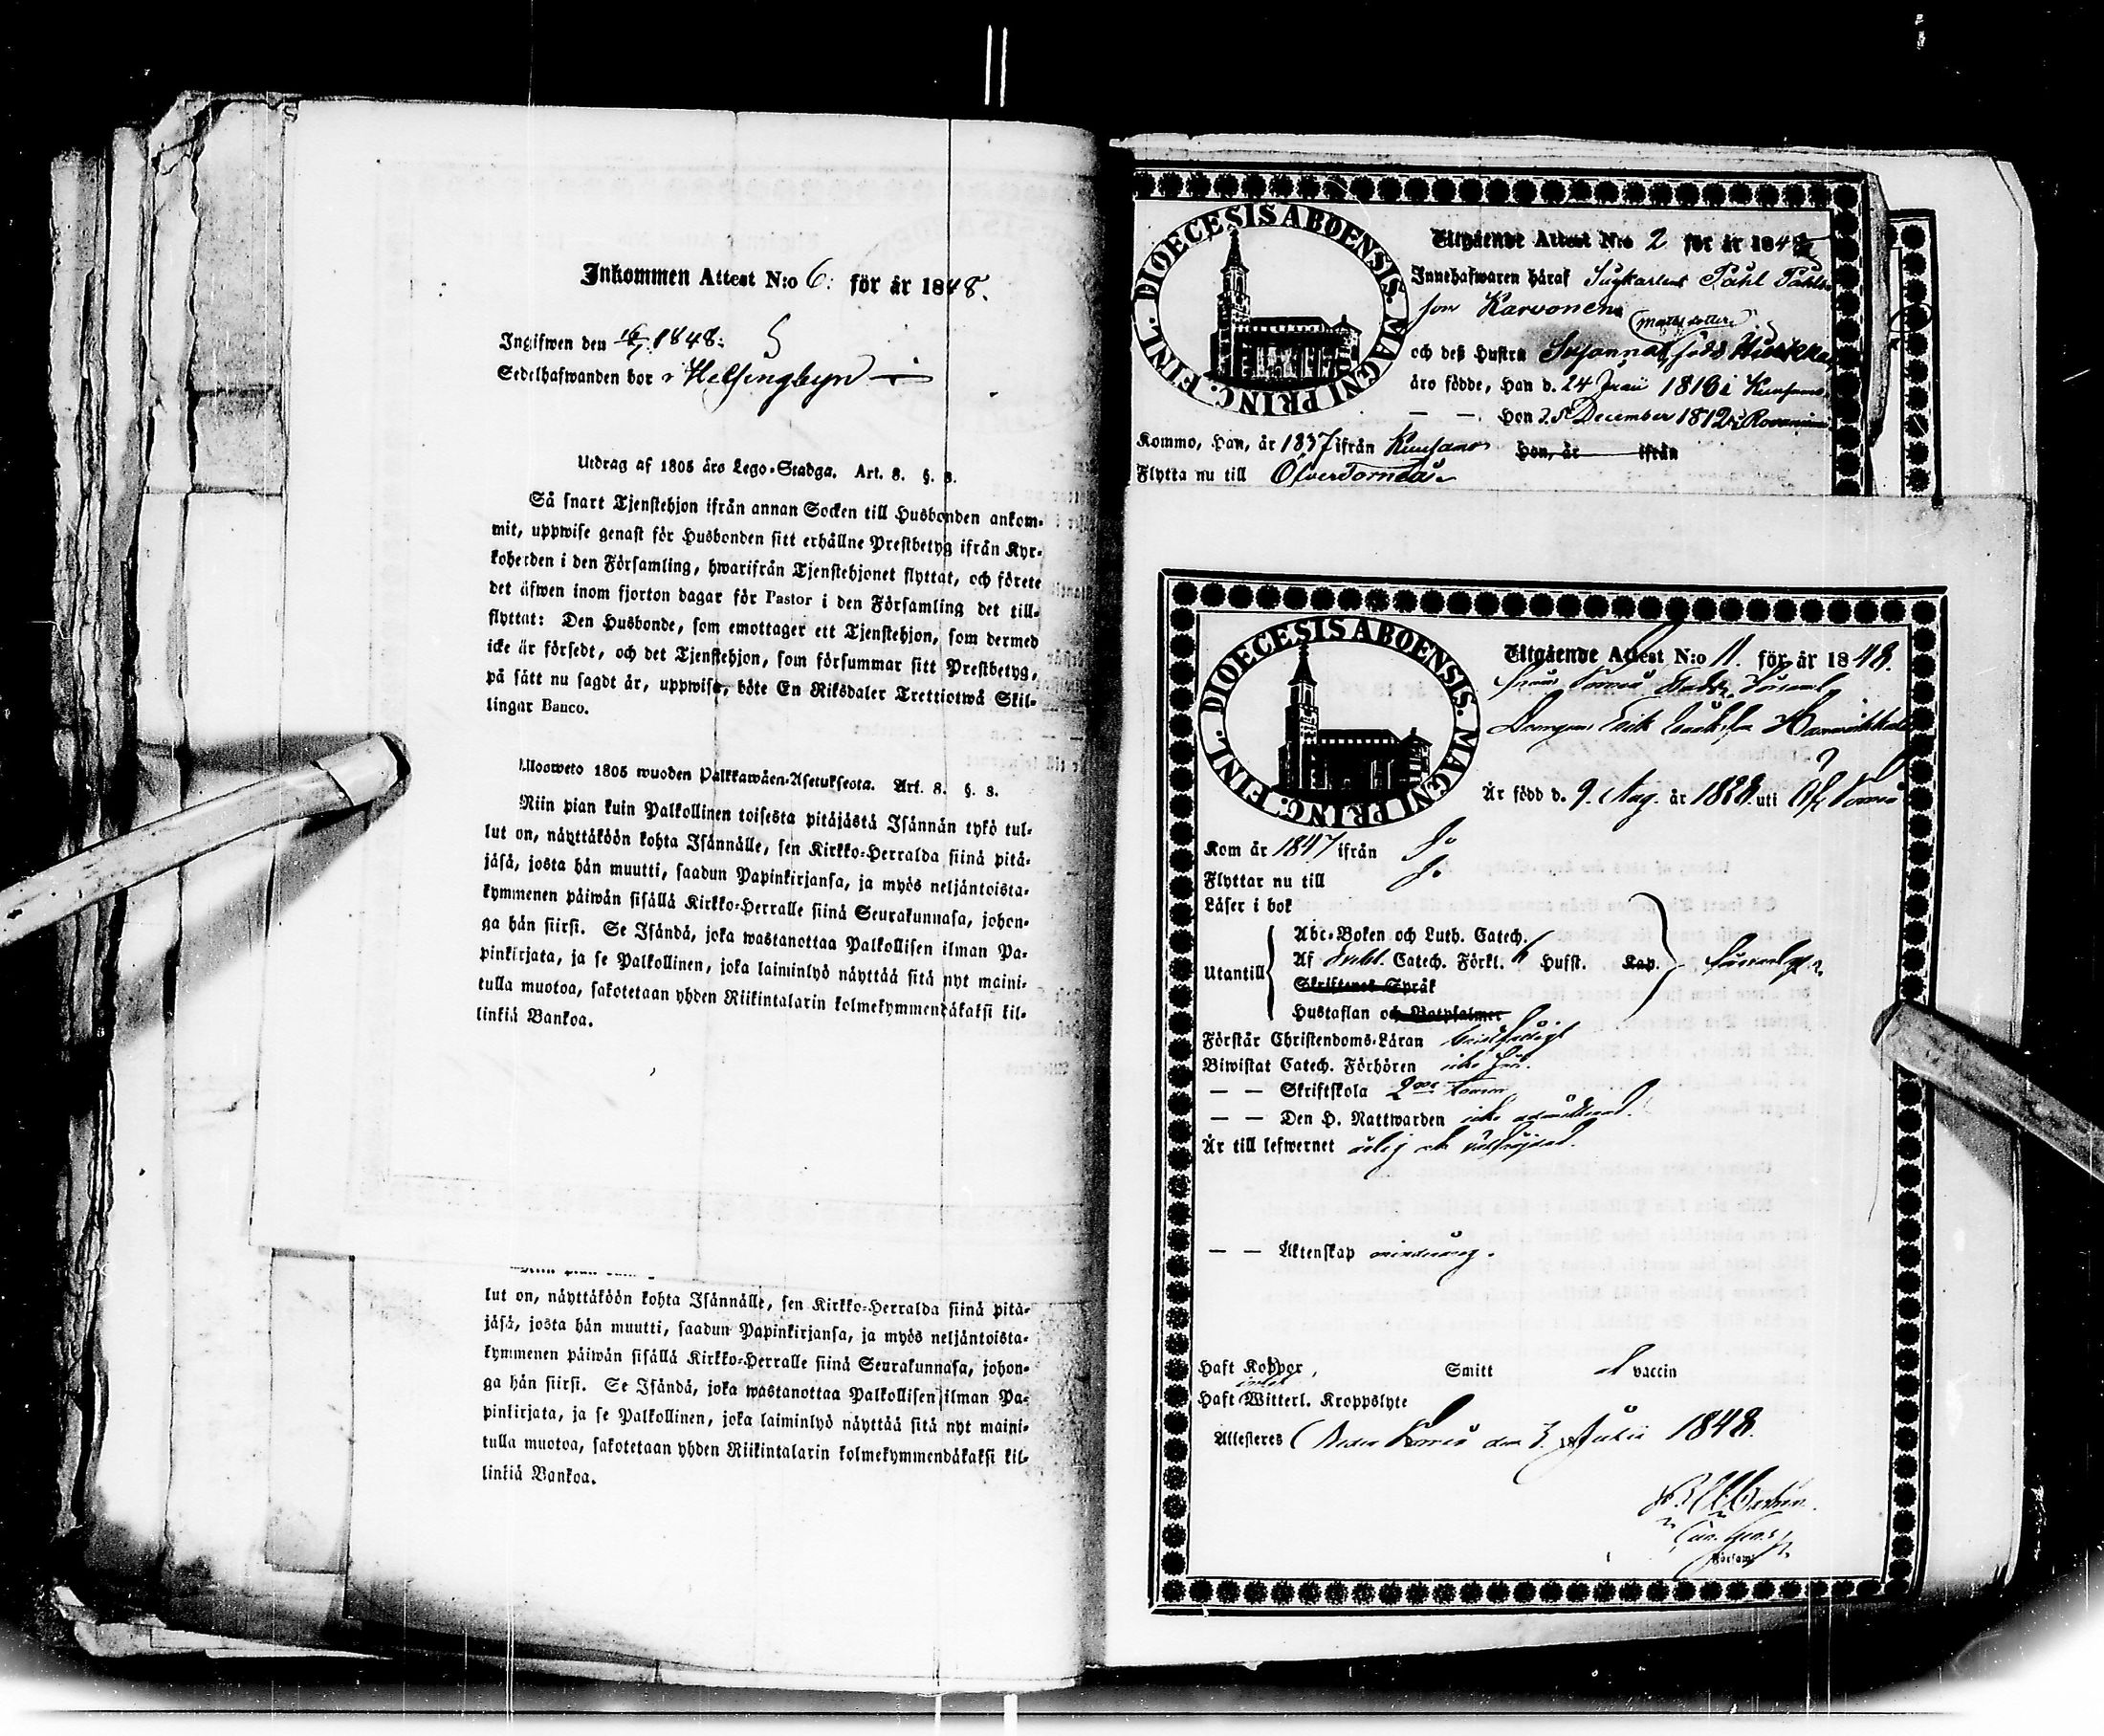 Inkommen Attest N:o 6. för år 1848.
Ingifwen den 16/7 1848.
Sedelhafwanden bor i Helsingbyn
Utdrag af 1805 års Lego-Stadga. Art. 8. §. 8.
Så snart Tjenstehjon ifrån annan Socken till Husbonden ankom-
mit, uppwise genast för Husbonden sitt erhållne Prestbetyg ifrån Kyr-
koherden i den Församling, hwarifrån Tjenstehjonet flyttat, och förete
det äfwen inom fjorton dagar för Pastor i den Församling det till-
flyttat: Den Husbonde, som emottager ett Tjenstehjon, som dermed
icke är försedt, och det Tjenstehjon, som försummar sitt Prestbetyg,
på sätt nu sagdt är, uppwisa, böte En Riksdaler Trettiotwå Skil-
lingar Banco.
Ulosweto 1805 wuoden Palkkawäen-Asetuksesta. Art. 8. §. 8.
Niin pian kuin Palkollinen toisesta pitäjästä Isännän tykö tul-
lut on, näyttäköön kohta Isännälle, sen Kirkko-Herralda siinä pitä-
jäsä, josta hän muutti, saadun Papinkirjansa, ja myös neljäntoista-
kymmenen päiwän sisällä Kirkko-Herralle siinä Seurakunnasa, johon-
ga hän siirsi. Se Isändä, joka wastanottaa Palkollisen ilman Pa-
pinkirjata, ja se Palkollinen, joka laiminlyö näyttää sitä nyt maini-
tulla muotoa, sakotetaan yhden Riikintalarin kolmekymmendäkaksi kil-
linkiä Bankoa.
lut on, näyttäköön kohta Isännälle, sen Kirkko-Herralda siinä pitä-
jäsä, josta hän muutti, saadun Papinkirjansa, ja myös neljäntoista-
kymmenen päiwän sisällä Kirkko-Herralle siinä Seurakunnasa, johon-
ga hän siirsi. Se Isändä, joka wastanottaa Palkollisen ilman Pa-
pinkirjata, ja se Palkollinen, joka laiminlyö näyttää sitä nyt maini-
tulla muotoa, sakotetaan yhden Riikintalarin kolmekymmendäkaksi kil-
linkiä Bankoa.
DIOECESIS ABOENSIS. MAGNI PRINC. FINL.
Utgående Attest N:o 2 för år 184
Innehafwaren häraf Påhl Påhls
son Karvonen
Mats dotter
och deß Hustru Susanna född
äro födde, Han d. 24 Junii 1816 i Kuusamo
— — Hon d. 5 December 1812 i Rovaniemi
Kommo, Han, år 1837 ifrån Kuusamo Hon, år ifrån
Flytta nu till Öfvertorneå
DIOECESIS ABOENSIS. MAGNI PRINC. FINL.
Utgående Attest N:o 11. för år 1848.
från Torneå Stads Församl
Drengen Erik
Är född d. 9. Aug. år 1828. uti Öf. Torneå
Kom år 1847 ifrån do
Flyttar nu till do
Läser i bok
Abc-Boken och Luth. Catech.
Utantill Af Svebel. Catech. Förkl. 6 Hufst. Kap. försvarligt
Skriftenes Språk
Hustaflan och Botpsalmer
Förstår Christendoms-Läran bristfälligt
Biwistat Catech. Förhören icke här.
— — Skriftskola 2ne
— — Den H. Nattwarden icke admitterad.
Är till lefwernet ärlig och välfrejdad.
— — Äktenskap minderårig.
Haft Koppor, Smitt vaccin
intet
Haft Witterl. Kroppslyte
Attesteres Neder Torneå den 3. Julii 1848.
Församl